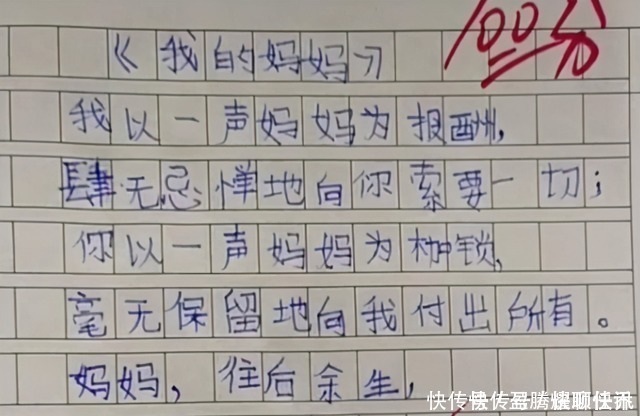 100分
《我的妈妈》
我以一声妈妈为报酬,
肆无忌惮地向你索要一切;
你以一声妈妈为枷锁,
毫无保留地向我付出所有。
妈妈,往后余生,
快传号